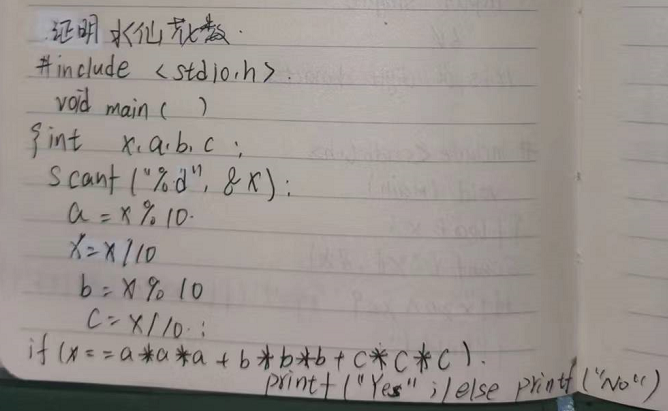 证明水仙花数.
#include <stdio.h>.
void main( )
{int x,a,b,c;
scanf("%d", &x);
a = x % 10.
x = x / 10
b = x % 10
c = x / 10.;
if (x == a*a*a + b*b*b + c*c*c).
printf("Yes" ;) else printf("No")